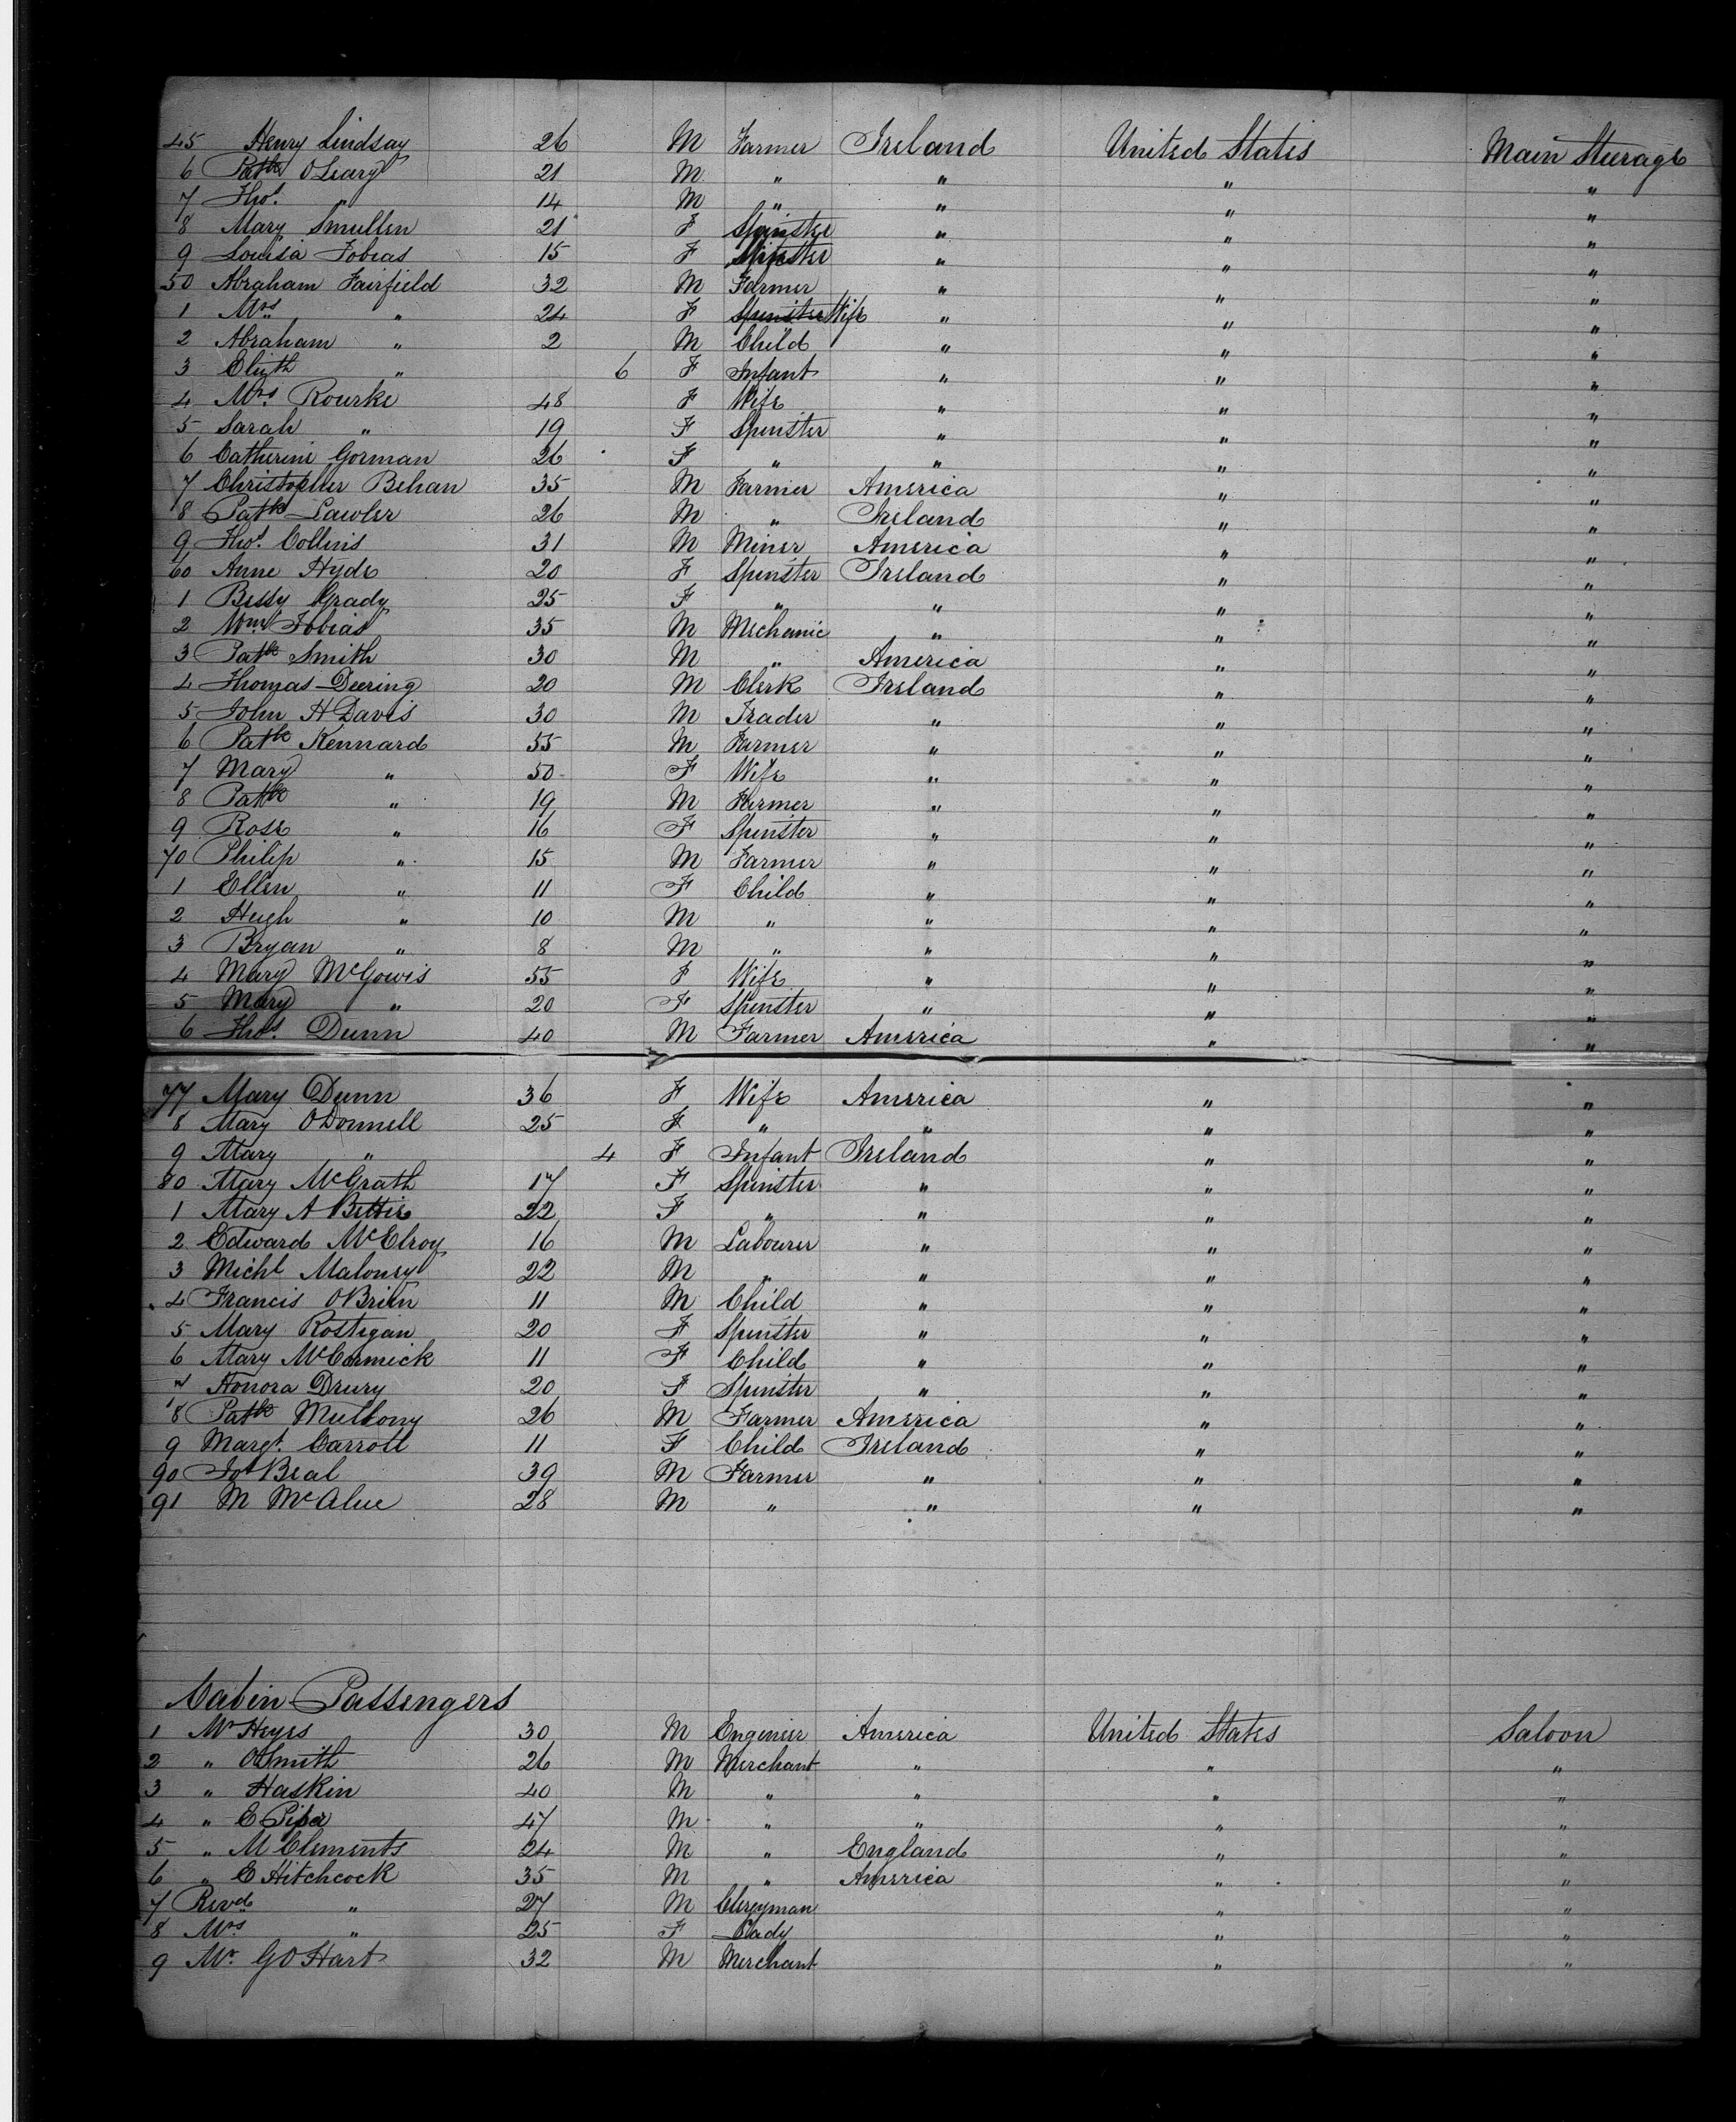 45 Henry Lindsay 26 M Farmer Ireland United States Main Steerage
6 Patk OLeary 21 M " " " "
7 Thos. " 14 M " " " "
8 Mary Smullen 21 F Spinster " " "
9 Louisa Tobias 15 F Spinster " " "
50 Abraham Fairfield 32 M Farmer " " "
1 Mrs " 24 F Spinster Wife " " "
2 Abraham " 2 M Child " " "
3 Elizth " 6 F Infant " " "
4 Mrs. Rourke 48 F Wife " " "
5 Sarah " 19 F Spinster " " "
6 Catherine Gorman 26 F " " " "
7 Christopher Behan 35 M Farmer America " "
8 Patk Lawler 26 M " Ireland " "
9 Thos. Collins 31 M Miner America " "
60 Anne Hyde 20 F Spinster Ireland " "
1 Bessy Grady 25 F " " " "
2 Wm Tobias 35 M Mechanic " " "
3 Patk Smith 30 M " America " "
4 Thomas Deering 20 M Clerk Ireland " "
5 John H Davis 30 M Trader " " "
6 Patk Kennard 55 M Farmer " " "
7 Mary " 50 F Wife " " "
8 Patk " 19 M Farmer " " "
9 Rose " 16 F Spinster " " "
70 Philip " 15 M Farmer " " "
1 Ellen " 11 F Child " " "
2 Hugh " 10 M " " " "
3 Bryan " 8 M " " " "
4 Mary McGowis 55 F Wife " " "
5 Mary " 20 F Spinster " " "
6 Thos. Dunn 40 M Farmer America " "
77 Mary Dunn 36 F Wife America " "
8 Mary ODonnell 25 F " " " "
9 Mary " 4 F Infant Ireland " "
80 Mary McGrath 17 F Spinster " " "
1 Mary A Bettie 22 F " " " "
2 Edward McElroy 16 M Labourer " " "
3 Michl Maloney 22 M " " " "
4 Francis OBrien 11 M Child " " "
5 Mary Rostigan 20 F Spinster " " "
6 Mary McCormick 11 F Child " " "
7 Honora Drury 20 F Spinster " " "
8 Patk Mullony 26 M Farmer America " "
9 Margt. Carroll 11 F Child Ireland " "
90 Jos Beal 39 M Farmer " " "
91 M McAlue 28 M " " " "
Cabin Passengers
1 Mr Heyes 30 M Engineer America United States Saloon
2 " O Smith 26 M Merchant " " "
3 " Haskin 40 M " " " "
4 " E Piper 47 M " " " "
5 " M Clements 24 M " England " "
6 " E Hitchcock 35 M " America " "
7 Revd " 27 M Clergyman " "
8 Mrs " 25 F Lady " "
9 Mr. G O Hart 32 M Merchant " "